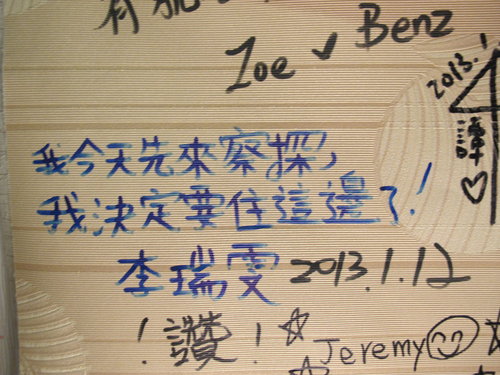 Zoe ✓ Benz
2013.1
譚♡
我今天先來察探,
我決定要住這邊了!
李瑞雯 2013.1.12
!讚!☆
Jeremy☺☆